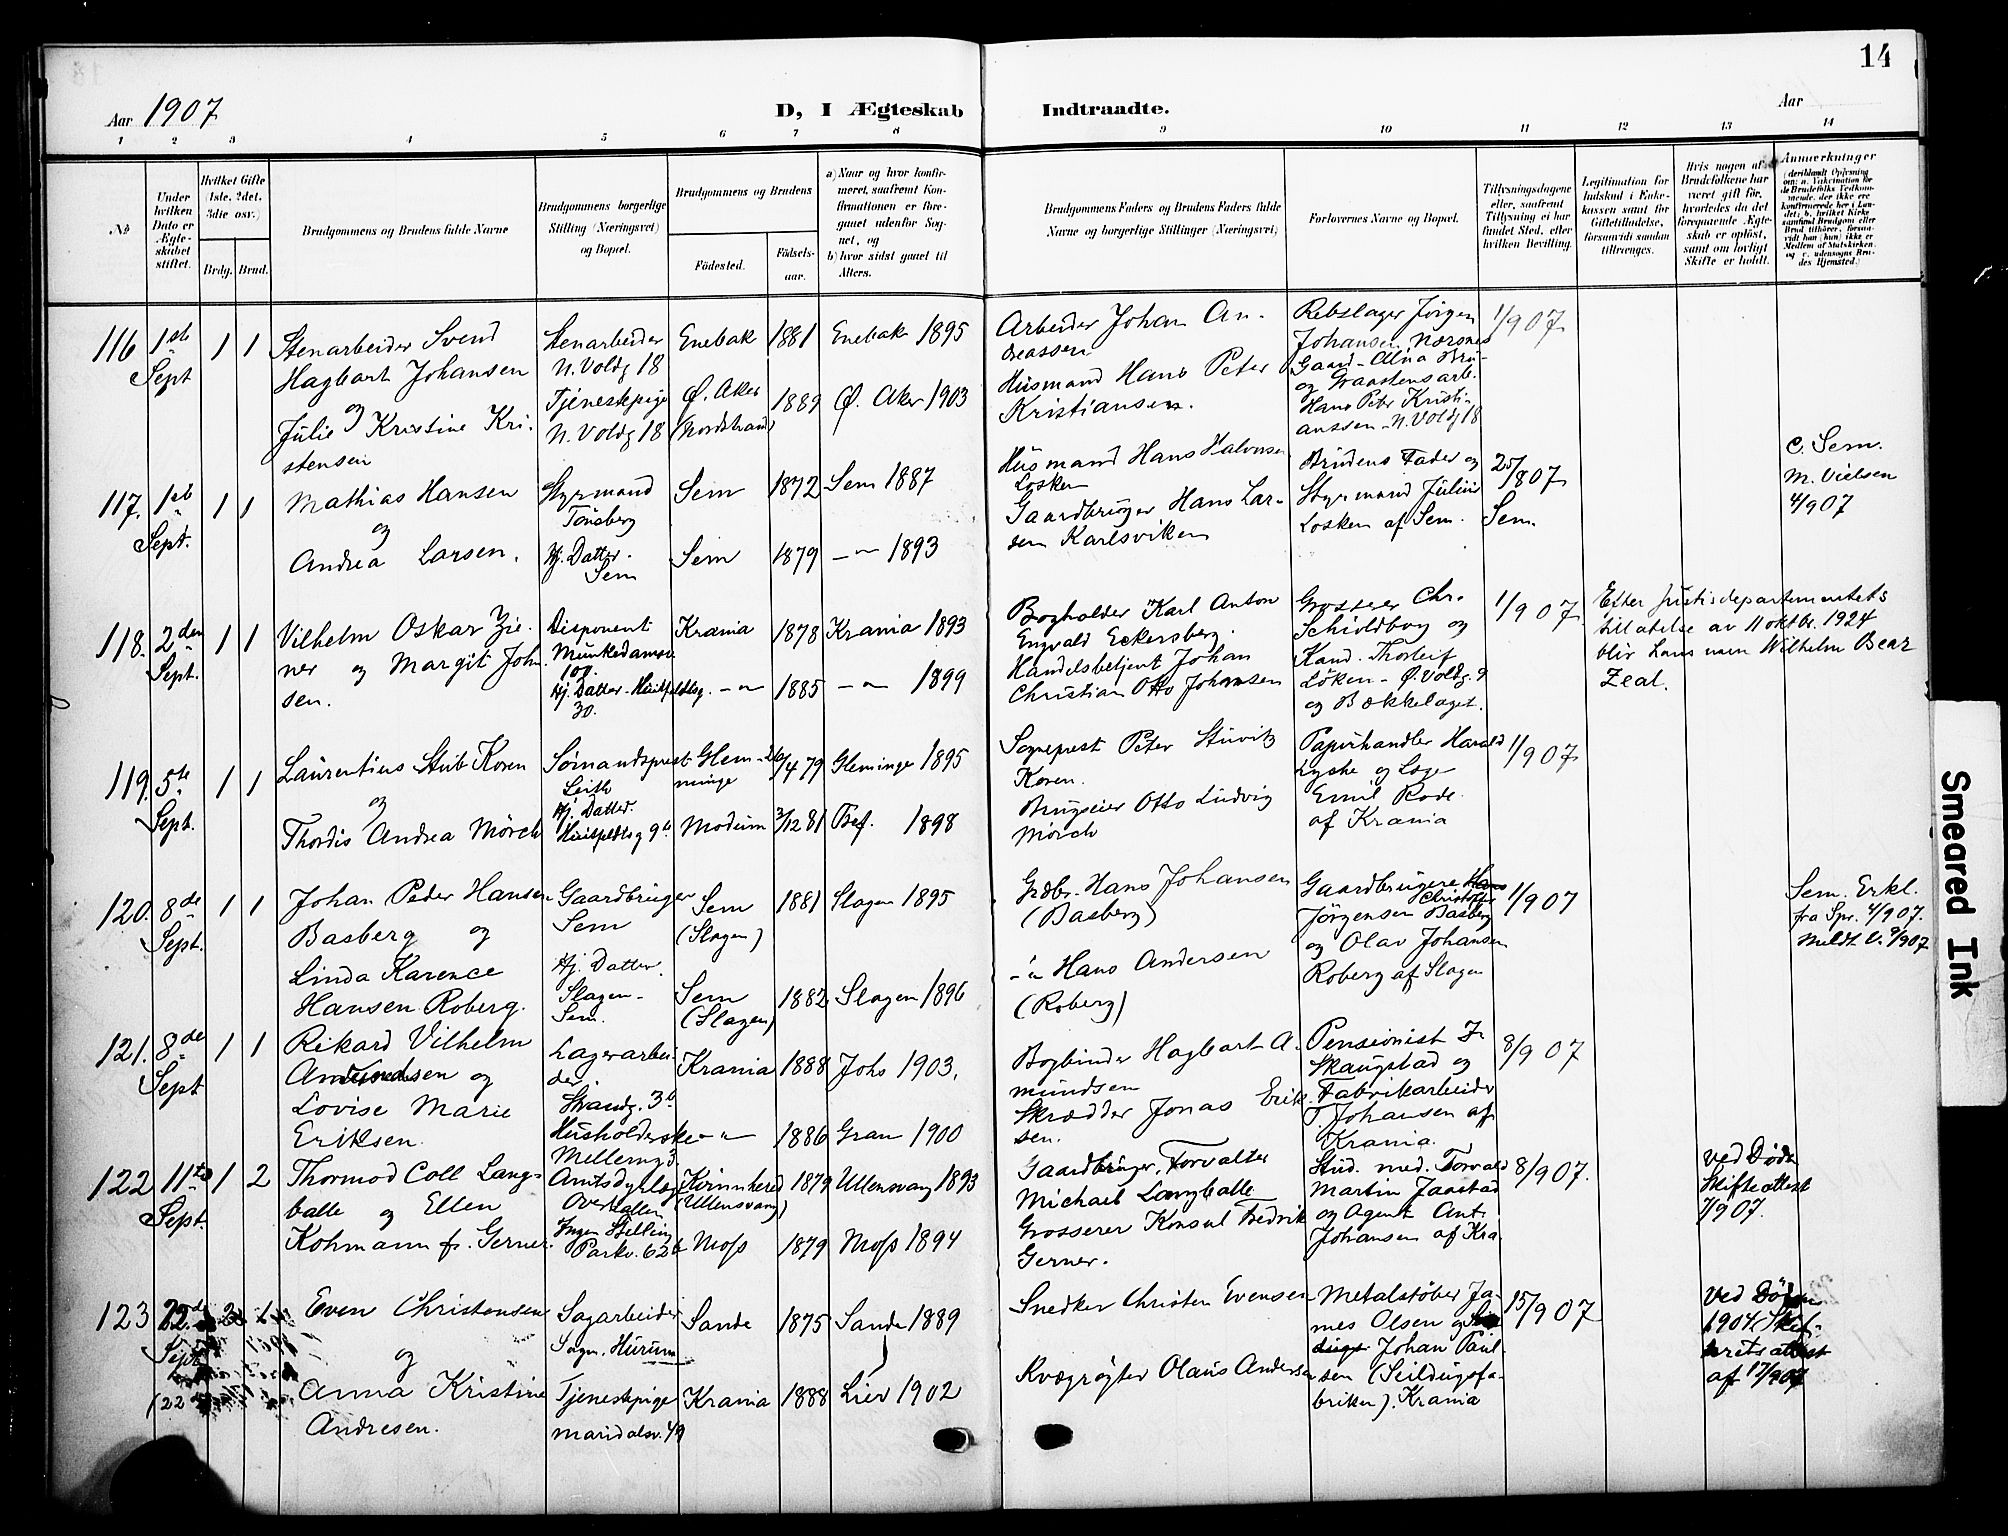 14
Aar 1907
D, I Ægteskab Indtraadte.
Aar
1 2 3 4 5 6 7 8 9 10 11 12 13 14
No
Under hvilken Dato er Ægteskabet stiftet.
Hvilket Gifte (1ste, 2det, 3die osv.)
Brdg. Brud.
Brudgommens og Brudens fulde Navne
Brudgommens borgerlige Stilling (Næringsvei) og Bopæl.
Brudgommens og Brudens
Fødested.
Fødsels-aar.
a) Naar og hvor konfirmeret, saafremt Konfirmationen er foregaaet udenfor Sognet, og
b) hvor sidst gaaet til Alters.
Brudgommens Faders og Brudens Faders fulde Navne og borgerlige Stillinger (Næringsvei)
Forlovernes Navne og Bopæl.
Tillysningsdagene eller, saafremt Tillysning ei har fundet Sted, efter hvilken Bevilling.
Legitimation for Indskud i Enkekassen samt for Giftetilladelse, forsaavidt saadan tiltrænges.
Hvis nogen af Brudefolkene har været gift før, hvorledes da det foregaaende Ægteskab er opløst, samt om lovligt Skifte er holdt.
Anmerkninger
116 1ste Sept 1 1
Stenarbeider Svend
Hagbart Johansen
og
Julie Kristine Kri-
stensen
Stenarbeider
N. Voldg 18
Tjenestpige
N. Voldg 18
Enebak 1881 Enebak 1895
Ø. Aker (Nordstrand) 1889 Ø. Aker 1903
Arbeider Johan An-
dreassen
Husmand Hans Peter
Kristiansen.
Rebslager Jørgen
Johansen Nærsnes
Gaard - Alna Bru-
og Graastensarb.
Hans Peter Kristi-
anssen - N. Voldg 18
1/9 07
117. 1ste Sept. 1 1
Mathias Hansen
og
Andrea Larsen.
Styrmand
Tønsberg
Hj. Datter.
Sem
Sem 1872 Sem 1887
Sem 1879 - " - 1893
Husmand Hans Halvorsen
Losken
Gaardbruger Hans Lar-
sen Karlsviken
Brudens Fader og
Styrmand Julius
Losken af Sem.
25/8 07
Sem.
c. Sem.
M. Vielsen
4/9 07
118. 2den Sept. 1 1
Vilhelm Oskar Zie-
ner og Margit Johan-
sen.
Disponent
Munkedamsv.
Hj. Datter - Huitfeldtsg.
30.
Krania 1878 Krania 1893
- " - 1885 - " - 1899
Bogholder Karl Anton
Engvald Eckersberg.
Handelsbetjent Johan
Christian Otto Johansen
Grosserer Chr.
Schioldborg og
Kand. Thorleif
Løken - Ø. Voldg. 9
og Bækkelaget.
1/9 07.
Efter Justisdepartementets
tillatelse av 11 oktbr. 1924
blir Lans navn Wilhelm Bear
Zeal.
119. 5te Sept. 1 1
Laurentius Stub Koren
og
Thordis Andrea Mörch
Sømandsprest
Leith
Hj. Datter.
Huitfeldtsg 9b
Glem-
minge 26/4 79 Gleminge 1895
Modum 3/12 81 Tref. 1898
Sogneprest Peter Stuvitz
Koren.
Brugseier Otto Ludvig
Mörch
Papirhandler Harald
Lyche og Læge
Emil Rode.
af Krania
1/9 07
120. 8de Sept. 1 1
Johan Peder Hansen
Basberg og
Linda Karence
Hansen Roberg.
Gaardbruger
Sem
Hj. Datter.
Slagen -
Sem.
Sem
(Slagen) 1881 Slagen 1895
Sem
(Slagen) 1882 Slagen 1896
Grdbr. Hans Johansen
(Basberg)
- " Hans Andersen
(Roberg)
Gaardbrugere Hans
Christoffer
Jørgensen Basberg
og Olav Johansen
Roberg af Slagen
1/9 07
Sem. Erkl.
fra Spr. 4/9 07.
Meldt V. 9/9 07
121. 8de Sept 1 1
Rikard Vilhelm
Amundsen og
Lovise Marie
Eriksen.
Lagerarbei-
der
Strandg. 3b
Husholderske
Mellemg 3.
Krania 1888 Johs 1903.
- " - 1886 Gran 1900
Bogbinder Hagbart A-
mundsen
Skrædder Jonas Erik-
sen.
Pensionist
Skaugstad og
Fabrikarbeider
T. Johansen af
Krania.
8/9 07
122 11te Sept. 1 2
Thormod Coll Lang-
balle og Ellen
Kohmann f. Gerner.
Amtsdyrlæge
Ingen Stilling
Parkv. 62b
Kvinnhered
(Ullensvang) 1879 Ullensvang 1893
Moss 1879 Moss 1894
Gaardbruger, Forvalter
Michael Langballe
Grosserer Konsul Fredrik
Gerner.
Stud. med. Torvald
Martin Jaastad
og Agent Ant.
Johansen af Kra
8/9 07.
ved Død
Skifteattest
7/9 07.
123 22de Sept 2 1
(22
Even Christensen
og
Anna Kristine
Andresen.
Sagarbeider
Sogn. Hurum
Tjenestpige
Maridalsv. 49
Sande 1875 Sande 1889
Krania 1888 Lier 1902
Snedker Christen Evensen
Kvægrøgter Olaus Andersen
Metalstøber Ja-
mes Olsen og
Johan Paul-
sen (Seildugsfa-
briken). Krania
15/9 07
Ved Død
1904 Skif-
teretsattest
af 17/9 07
Smeared Ink